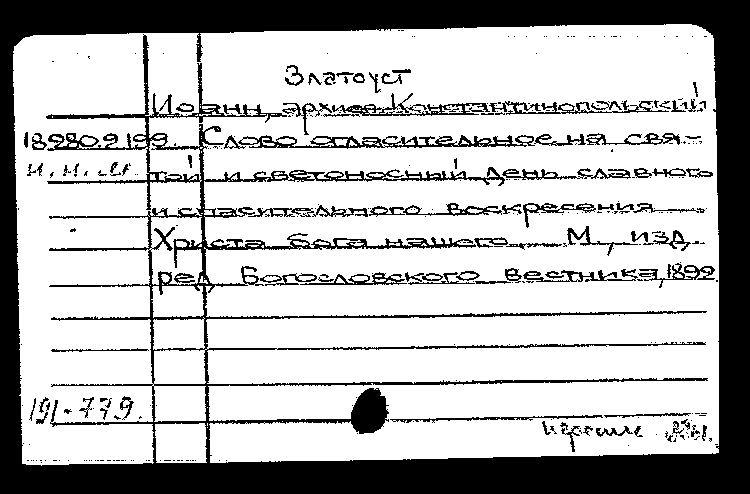 Златоуст
Иоанн, архиеп. Константинопольский.
18980.9199. Слово огласительное на свя-
н. н. м. той и светоносный день славного
и спасительного воскресения
Христа бога нашего. М., изд.
ред. Богословского вестника, 1899
191-779.